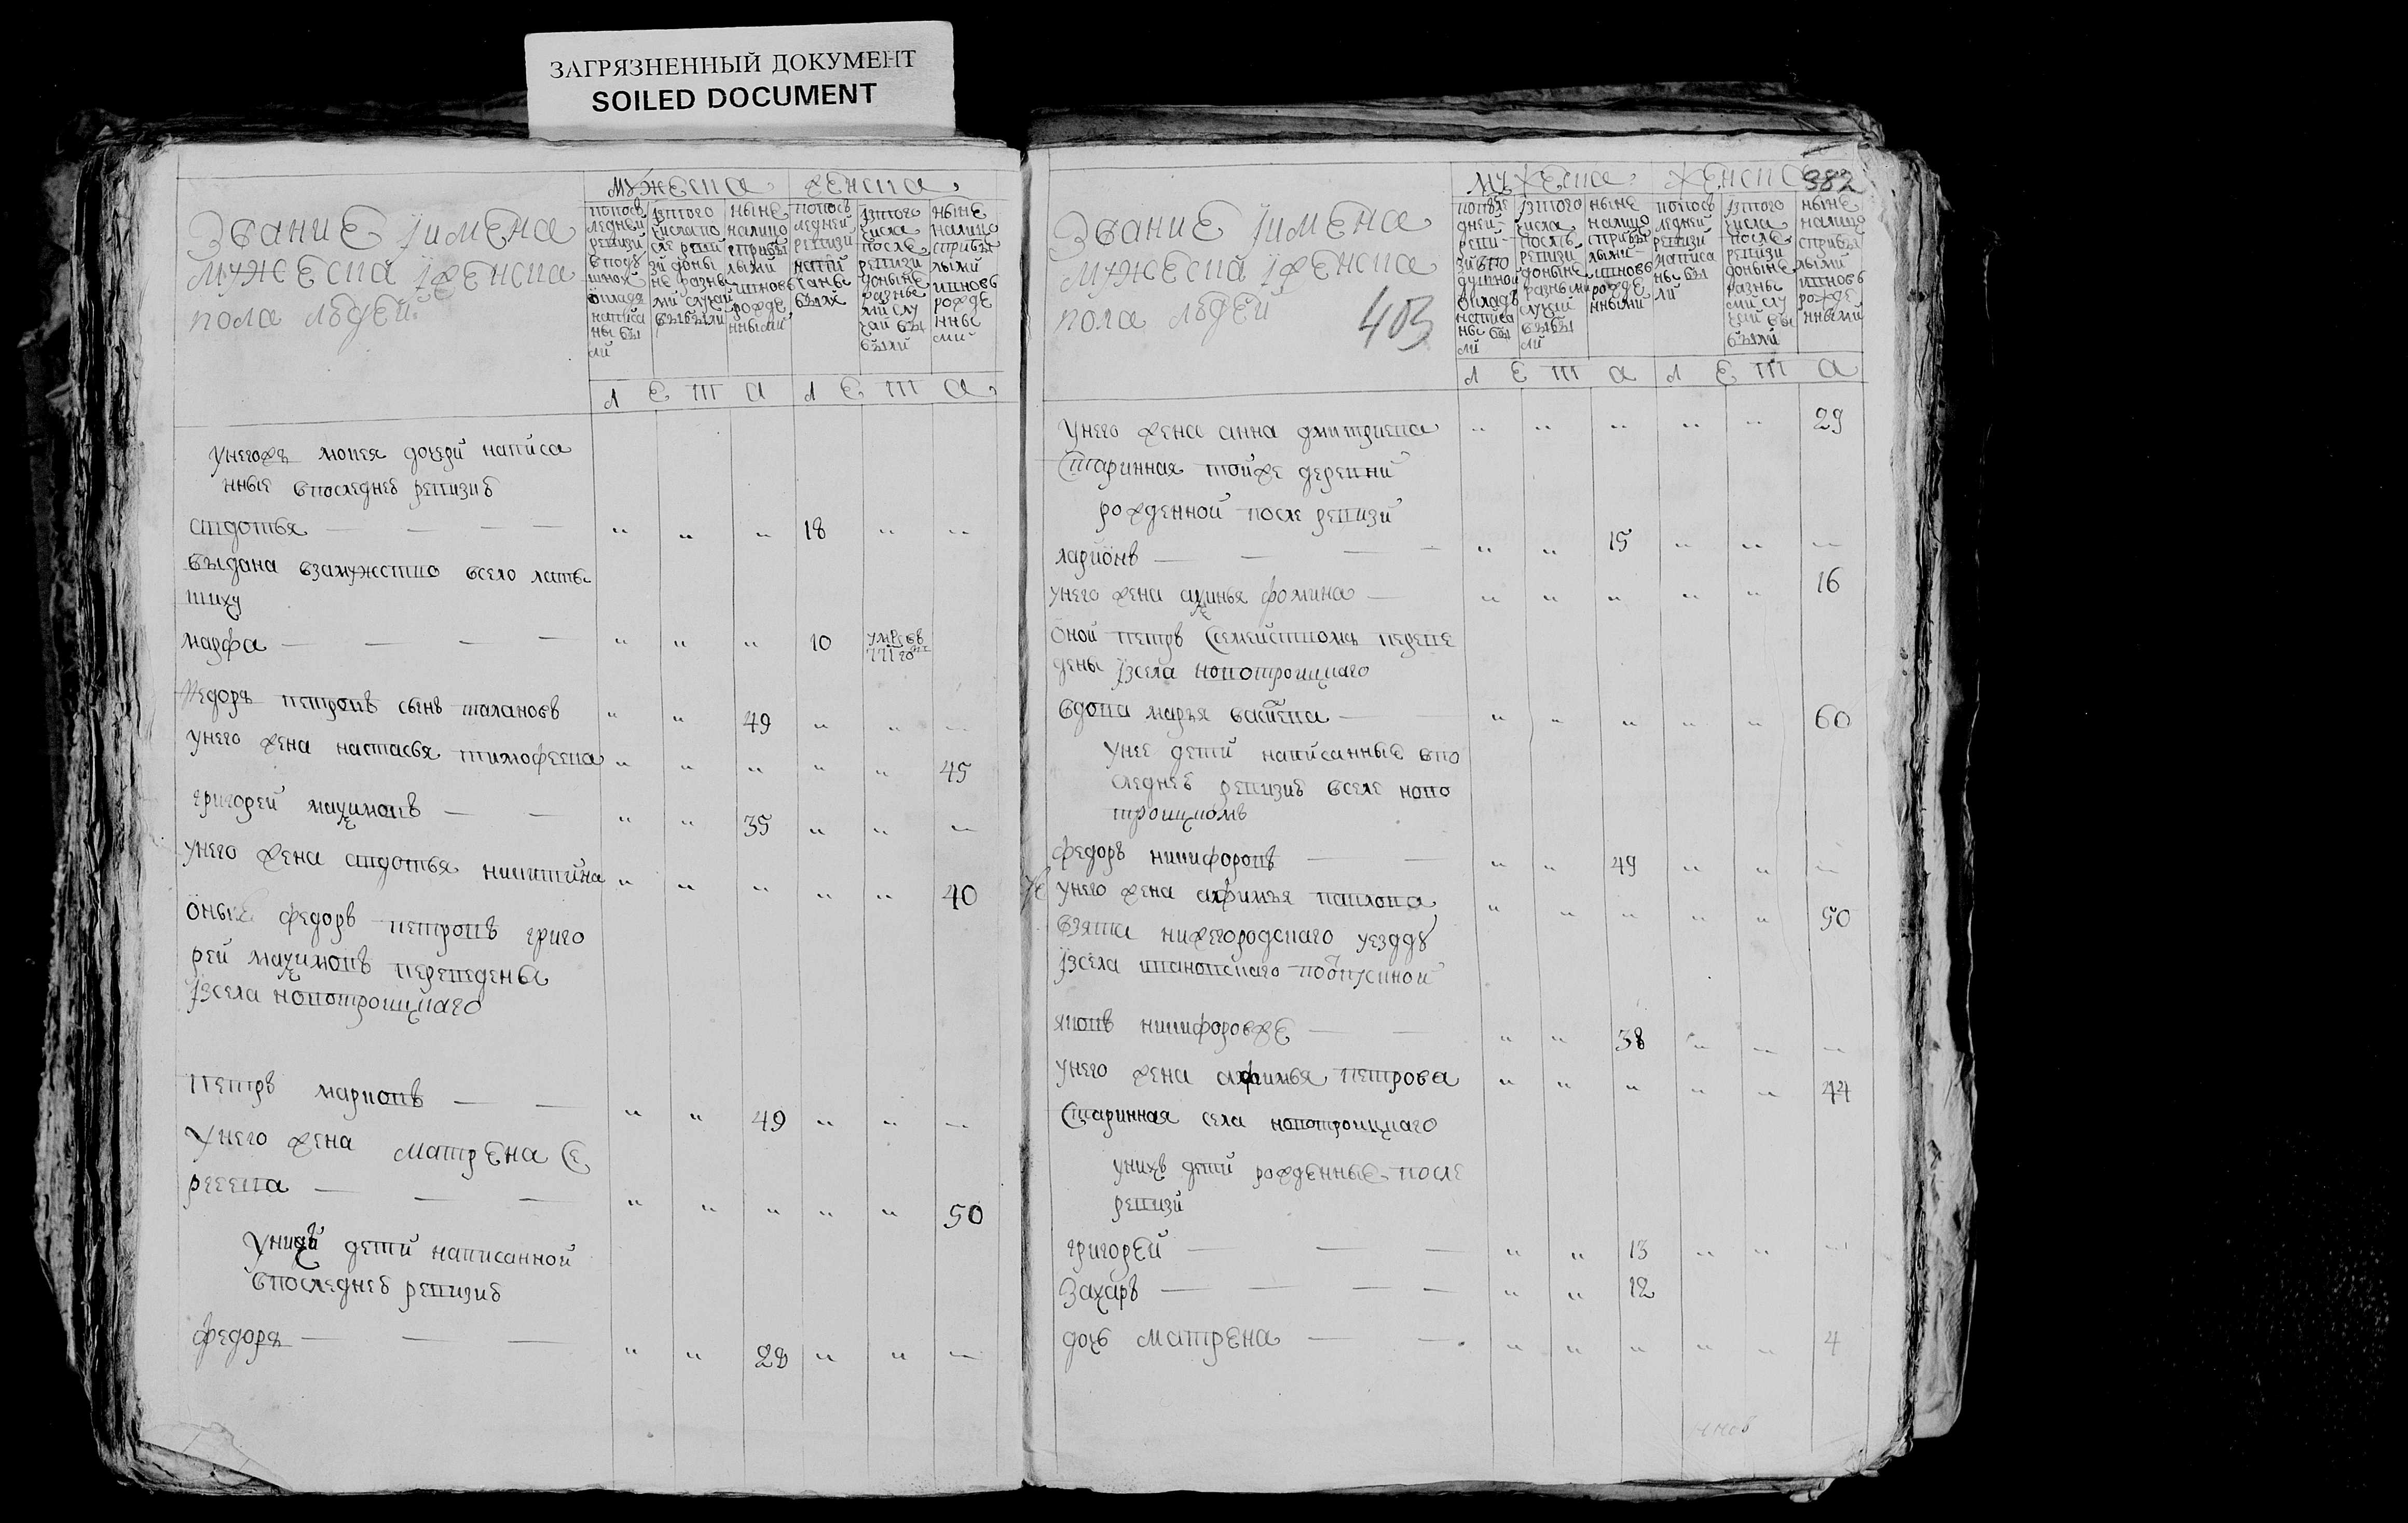 ЗАГРЯЗНЕННЫЙ ДОКУМЕНТ
SOILED DOCUMENT
Звание јимена
мужеска јженска
пола людей
мужеска
женска
попосъ
ледней
ревизи
вподу
шном
окладе
написа
ны бы
ли
јзтого
числа по
сле реви
зи доны
не разны
ми случаи
выбыли
ныне
налицо
сприбы
лыми
ивновь
рожде
нными
попосъ
ледней
ревизи
напи
саны
были
јзтого
числа
после
ревизи
доныне
разны
ми слу
чаи вы
были
ныне
налицо
сприбы
лыми
ивновь
рожде
нны
ми
л е т а л е т а
унегожъ мокея дочери написа
нные впоследнеъ ревизиъ
авдотья — — — — " " " 18 " "
выдана взамужство всело латы
шиху
марфа — — — — " " " 10 умре въ
771 го
Федоръ петровъ сынъ талановъ " " 49 " " "
унего жена настасья тимофеева " " " " " 45
григорей махимовъ — — " " 35 " " "
унего жена авдотья никитина " " " " " 40
оные федоръ петровъ григо
рей махимовъ переведены
јзсела новотроицкаго
Петръ марковъ — — " " 49 " " "
Унего жена матрена се
ргеева — — — " " " " " 50
Унихъ дети написанной
впоследнеъ ревизиъ
федоръ — — — " " 28 " " "
382
Звание јимена
мужеска јженска
пола людей
403
мужеска
женска
попосле
дней
реви
зи впо
душной
окладъ
написа
ны бы
ли
јзтого
числа
послъ
ревизи
доныне
разными
случаи
выбы
ли
ныне
налицо
сприбы
лыми
ивновь
рожде
нными
попосъ
ледней
ревизи
написа
ны бы
ли
јзтого
числа
после
ревизи
доныне
разны
ми слу
чаи вы
были
ныне
налицо
сприбы
лыми
ивновь
рожде
нными
л е т а л е т а
Унего жена анна дмитриева " " " " " 29
Старинная тойже деревни
рожденной после ревизи
ларионъ — — — — " " 15 " " "
унего жена аксинья фомина — " " " " " 16
оной петръ семействомъ переве
дены јзсела новотроицкаго
вдова марья васильева — " " " " " 60
унее дети написанные впо
следнеъ ревизиъ вселе ново
троицкомъ
федоръ никифоровъ — — " " 49 " " "
унего жена афимья павлова " " " " " 50
взята нижегородскаго уезду
јзсела ивановскаго поотпускной
яковъ никифоровже — — " " 38 " " "
унего жена афимья петрова " " " " " 44
Старинная села новотроицкаго
унихъ дети рожденные после
ревизи
григорей — — — " " 13 " " "
Захаръ — — — — " " 12
дочь матрена — — " " " " " 4